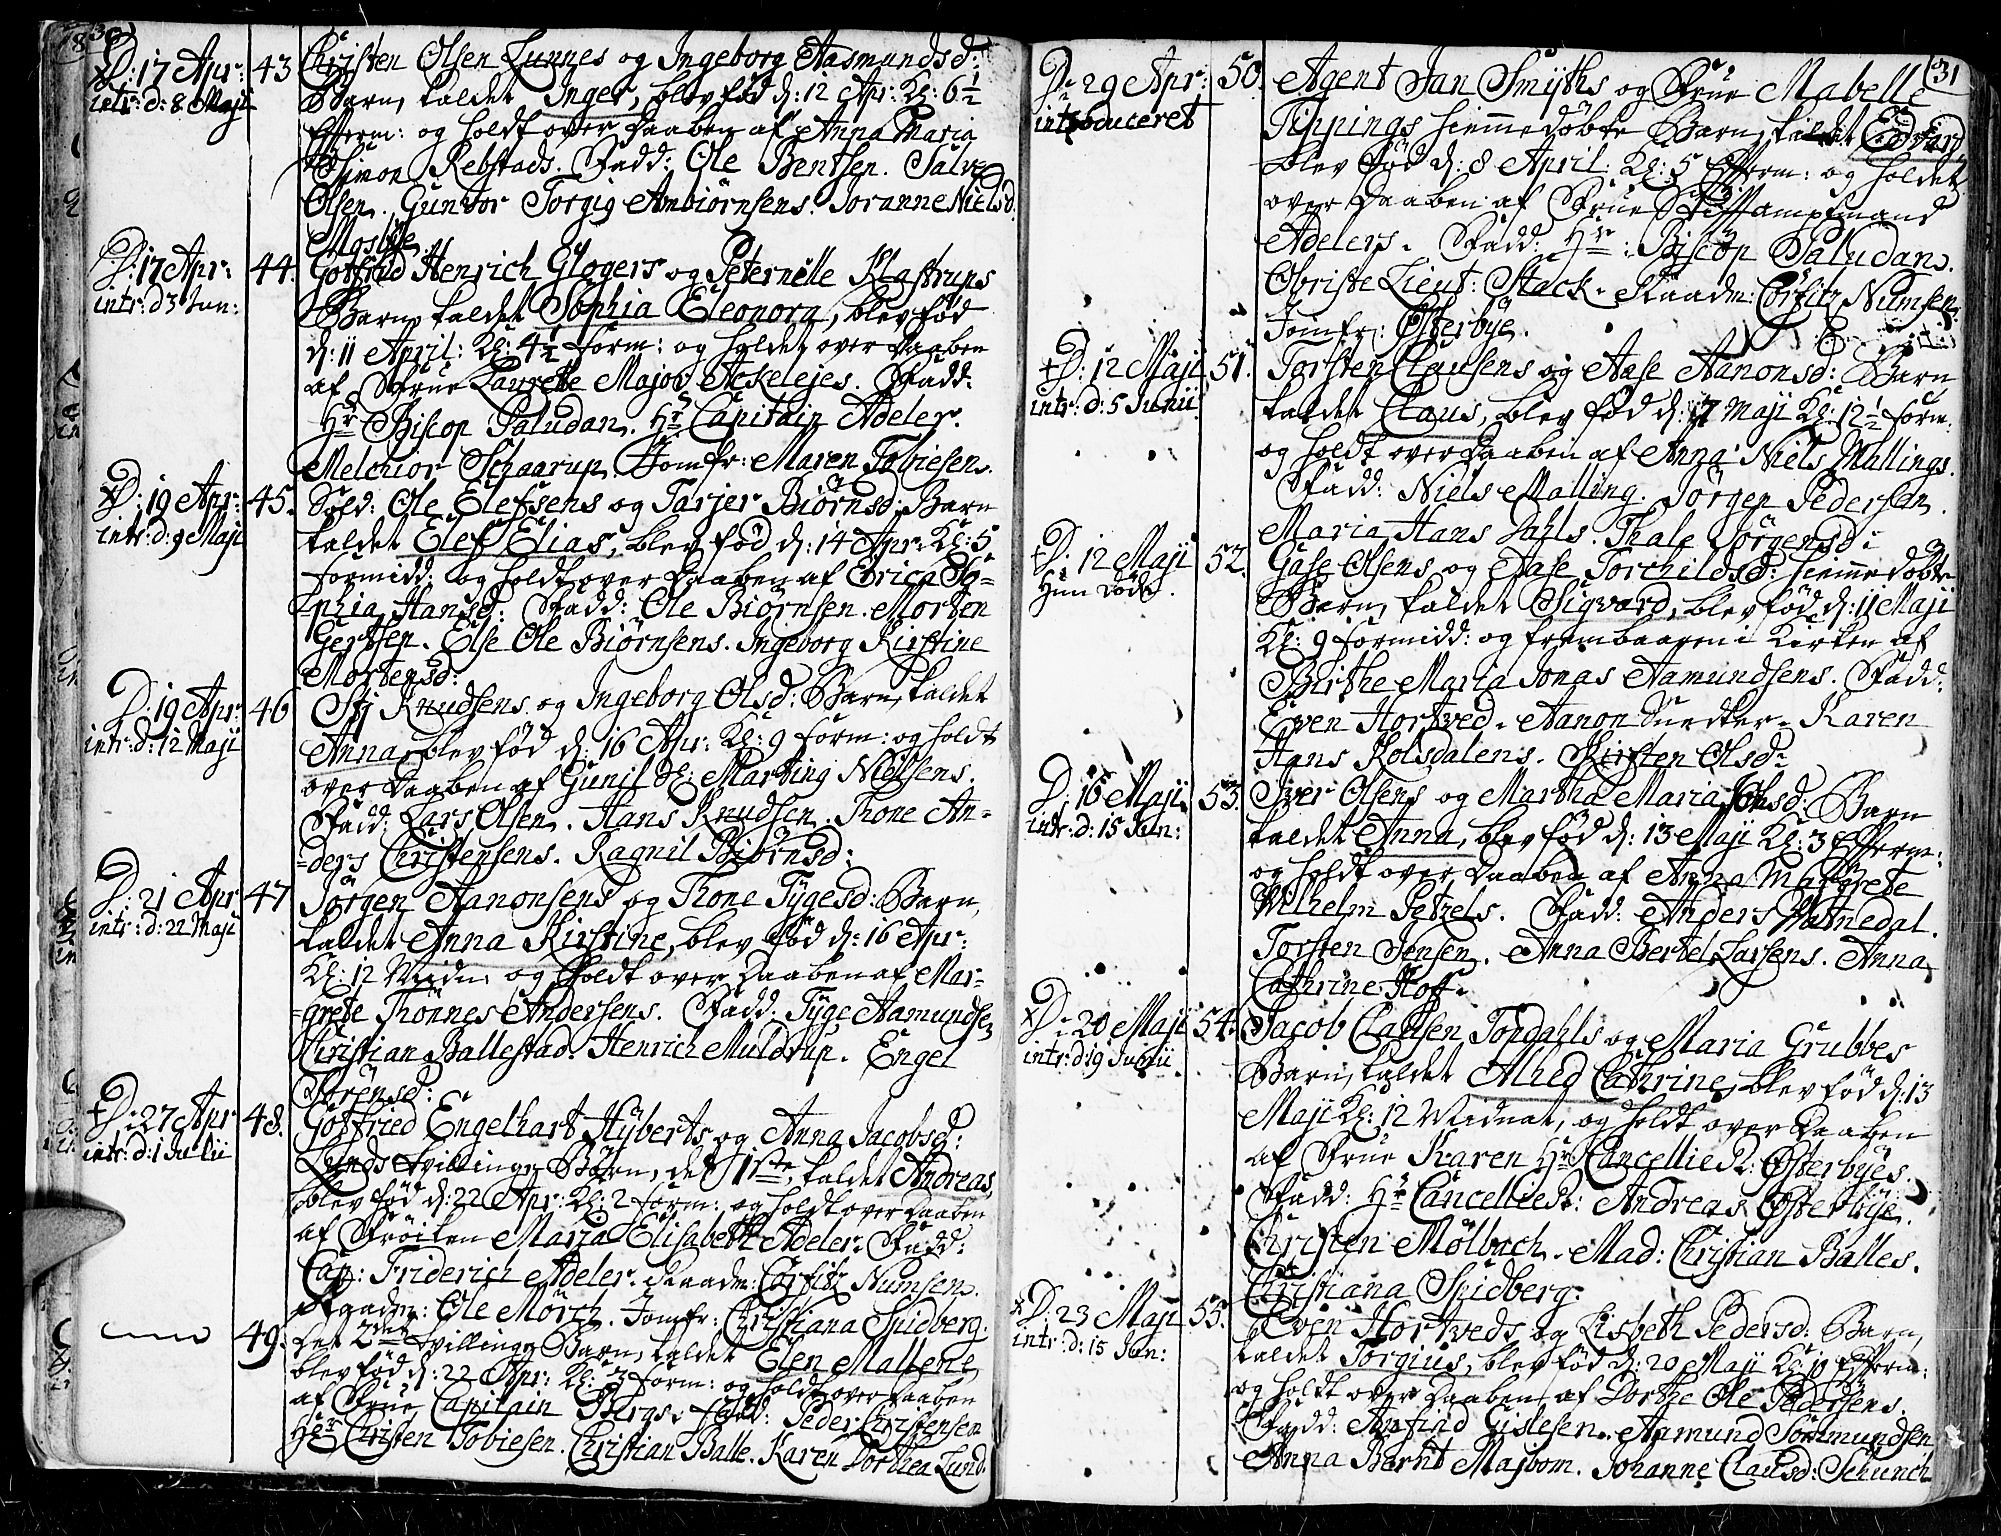 30
D: 17 Apr: 43 Christen Olsen Lunnes og Ingeborg Aasmundsd:
intr: d: 8 Maji Barn, kaldet Inger, blev fød d: 12 Apr: Kl: 6½
Efterm: og holdt over Daaben af Anna Maria
Simon Rebstads. Fadd: Ole Bentsen. Salve
Olsen. Gunvor Torgig Anbiörnsens. Joranne Nielsd.
Mosbye.
D: 17 Apr: 44. Gotfried Henrich Glogers og Peternelle Klastrups
intr: d 3 Jun: Barn, kaldet Sophia Eleonora, blev fød
d: 11 April: Kl: 4½ form: og holdet over Daaben
af Frue Laurette Major Ackelejes. Fadd:
Hr Biscop Paludan. Hr Capitain Adeler.
Melchior Schaarup. Jomfr: Maren Tobiesens.
D: 19 Apr: 45. Sold: Ole Elefsens og Tarjer Biörnsd: Barn
intr: d: 9 Maji kaldet Elef Elias, blev fød d: 14 Apr: Kl: 5
formidd: og holdt over Daaben af Erica So=
phia Hansd: Fadd: Ole Biörnsen. Morten
Gertsen. Else Ole Biörnsens. Ingeborg Kirstine
Mortensd:
D: 19 Apr: 46 Stj Knudsens og Ingeborg Olsd: Barn, kaldet
intr: d: 12 Maji Anna, blev fød d: 16 Apr: Kl: 9 form: og holdt
over Daaben af Gunil Martinj Nielsens.
Fadd: Lars Olsen. Hans Knudsen. Thone An=
=ders Christensens. Ragnil Biörnsd:
D: 21 Apr 47 Jörgen Aanonsens og Thone Tygesd: Barn,
intr: d: 22 Maji kaldet Anna Kirstine, blev fød d: 16 Apr:
Kl: 12 Midn: og holdt over Daaben af Mar=
=grete Thönnes Andersens. Fadd: Tyge Aamundsen
Christian Ballestad. Henrich Muldrup. Engel
Sörensd:
D: 27 Apr 48. Gotfried Engelhart Hyberts og Anna Jacobsd:
intr: d: 1 Julii Lunds tvillinge Börn, det 1ste, kaldet Andreas,
blev fød d: 22 Apr: Kl: 2 form: og holdt over Daaben
af Fröiken Maria Elisabeth Adeler. Fadd:
Cap: Friderich Adeler. Raadm: Corfitz Numsen.
Raadm: Ole Mörch. Jomfr: Christiana Spidberg.
49. Det 2den tvillinge Barn, kaldet Elen Malene,
blev fød d: 22 Apr: Kl: 3 form: og holdt over Daaben
af Frue Capitain Bergs. Fadd: Peder Christensen
Hr Christen Tobiesen. Christian Balle. Karen Dorthea Lund.
31
D: 29 Apr: 50. Agent Jan Smyths og Frue Mabelle
introduceret Tippings hiemmedöbte Barn, kaldet Edvard,
blev fød d: 8 April: Kl: 5 Efterm: og holdet
over Daaben af Frue Stiftamptmand
Adelers. Fadd: Hr: Biscop Paludan.
Obriste Lieut: Stack. Raadm: Corfitz Numsen.
Jomfr: Österbye.
D: 12 Maji 51. Torsten Clausens og Aase Aanonsd: Barn
intr: d: 5 Junii kaldet Claus, blev fød d: 7 Maji Kl: 12½ form:
og holdt over Daaben af Anna Niels Mallings.
Fadd: Niels Malling. Jörgen Pedersen.
Maria Hans Dahls. Thale Jörgensd:
D: 12 Maji 52. Gase Olsens og Aase Torchildsd: hiemmedöbte
Hun döde. Barn, kaldet Sigvard, blev fød d: 11 Maji
Kl: 9 formidd: og frembaaren i Kirken af
Birthe Maria Jonas Aamundsens. Fadd:
Even Hortved. Aanon Snedker. Karen
Hans Kolsdalens. Kirsten Olsd:
D: 16 Maji 53. Iver Olsens og Martha Maria Johsd: Barn
intr: d: 15 Jun: kaldet Anna, blev fød d: 13 Maji Kl: 3 Efterm:
og holdt over Daaben af Anna Margrete
Wilhelm Petzels. Fadd: Anders Watnedal.
Torsten Jensen. Anna Bertel Larsens. Anna
Cathrine Hoff.
D: 20 Maji 54. Jacob Clausen Topdahls og Maria Grubbes
intr: d: 19 Junii Barn, kaldet Alhed Cathrine, blev fød d: 13
Maji Kl: 12 Midnat, og holdt over Daaben
af Frue Karen Hr CancellieR: Österbyes.
Fadd: Hr CancellieR: Andreas Österbye.
Christen Mölbach. Mad: Christian Balles.
Christiana Spidberg.
D: 23 Maji 55. Even Hortveds og Lisbeth Pedersd: Barn,
intr: d: 15 Jun: kaldet Torgius, blev fød d: 20 Maji Kl: 10 Efterm:
og holdt over Daaben af Dorthe Ole Pedersens.
Fadd: Anfind Gislesen. Aamund Sömmundsen
Anna Bernt Majbom. Johanne Clausd: Schunch